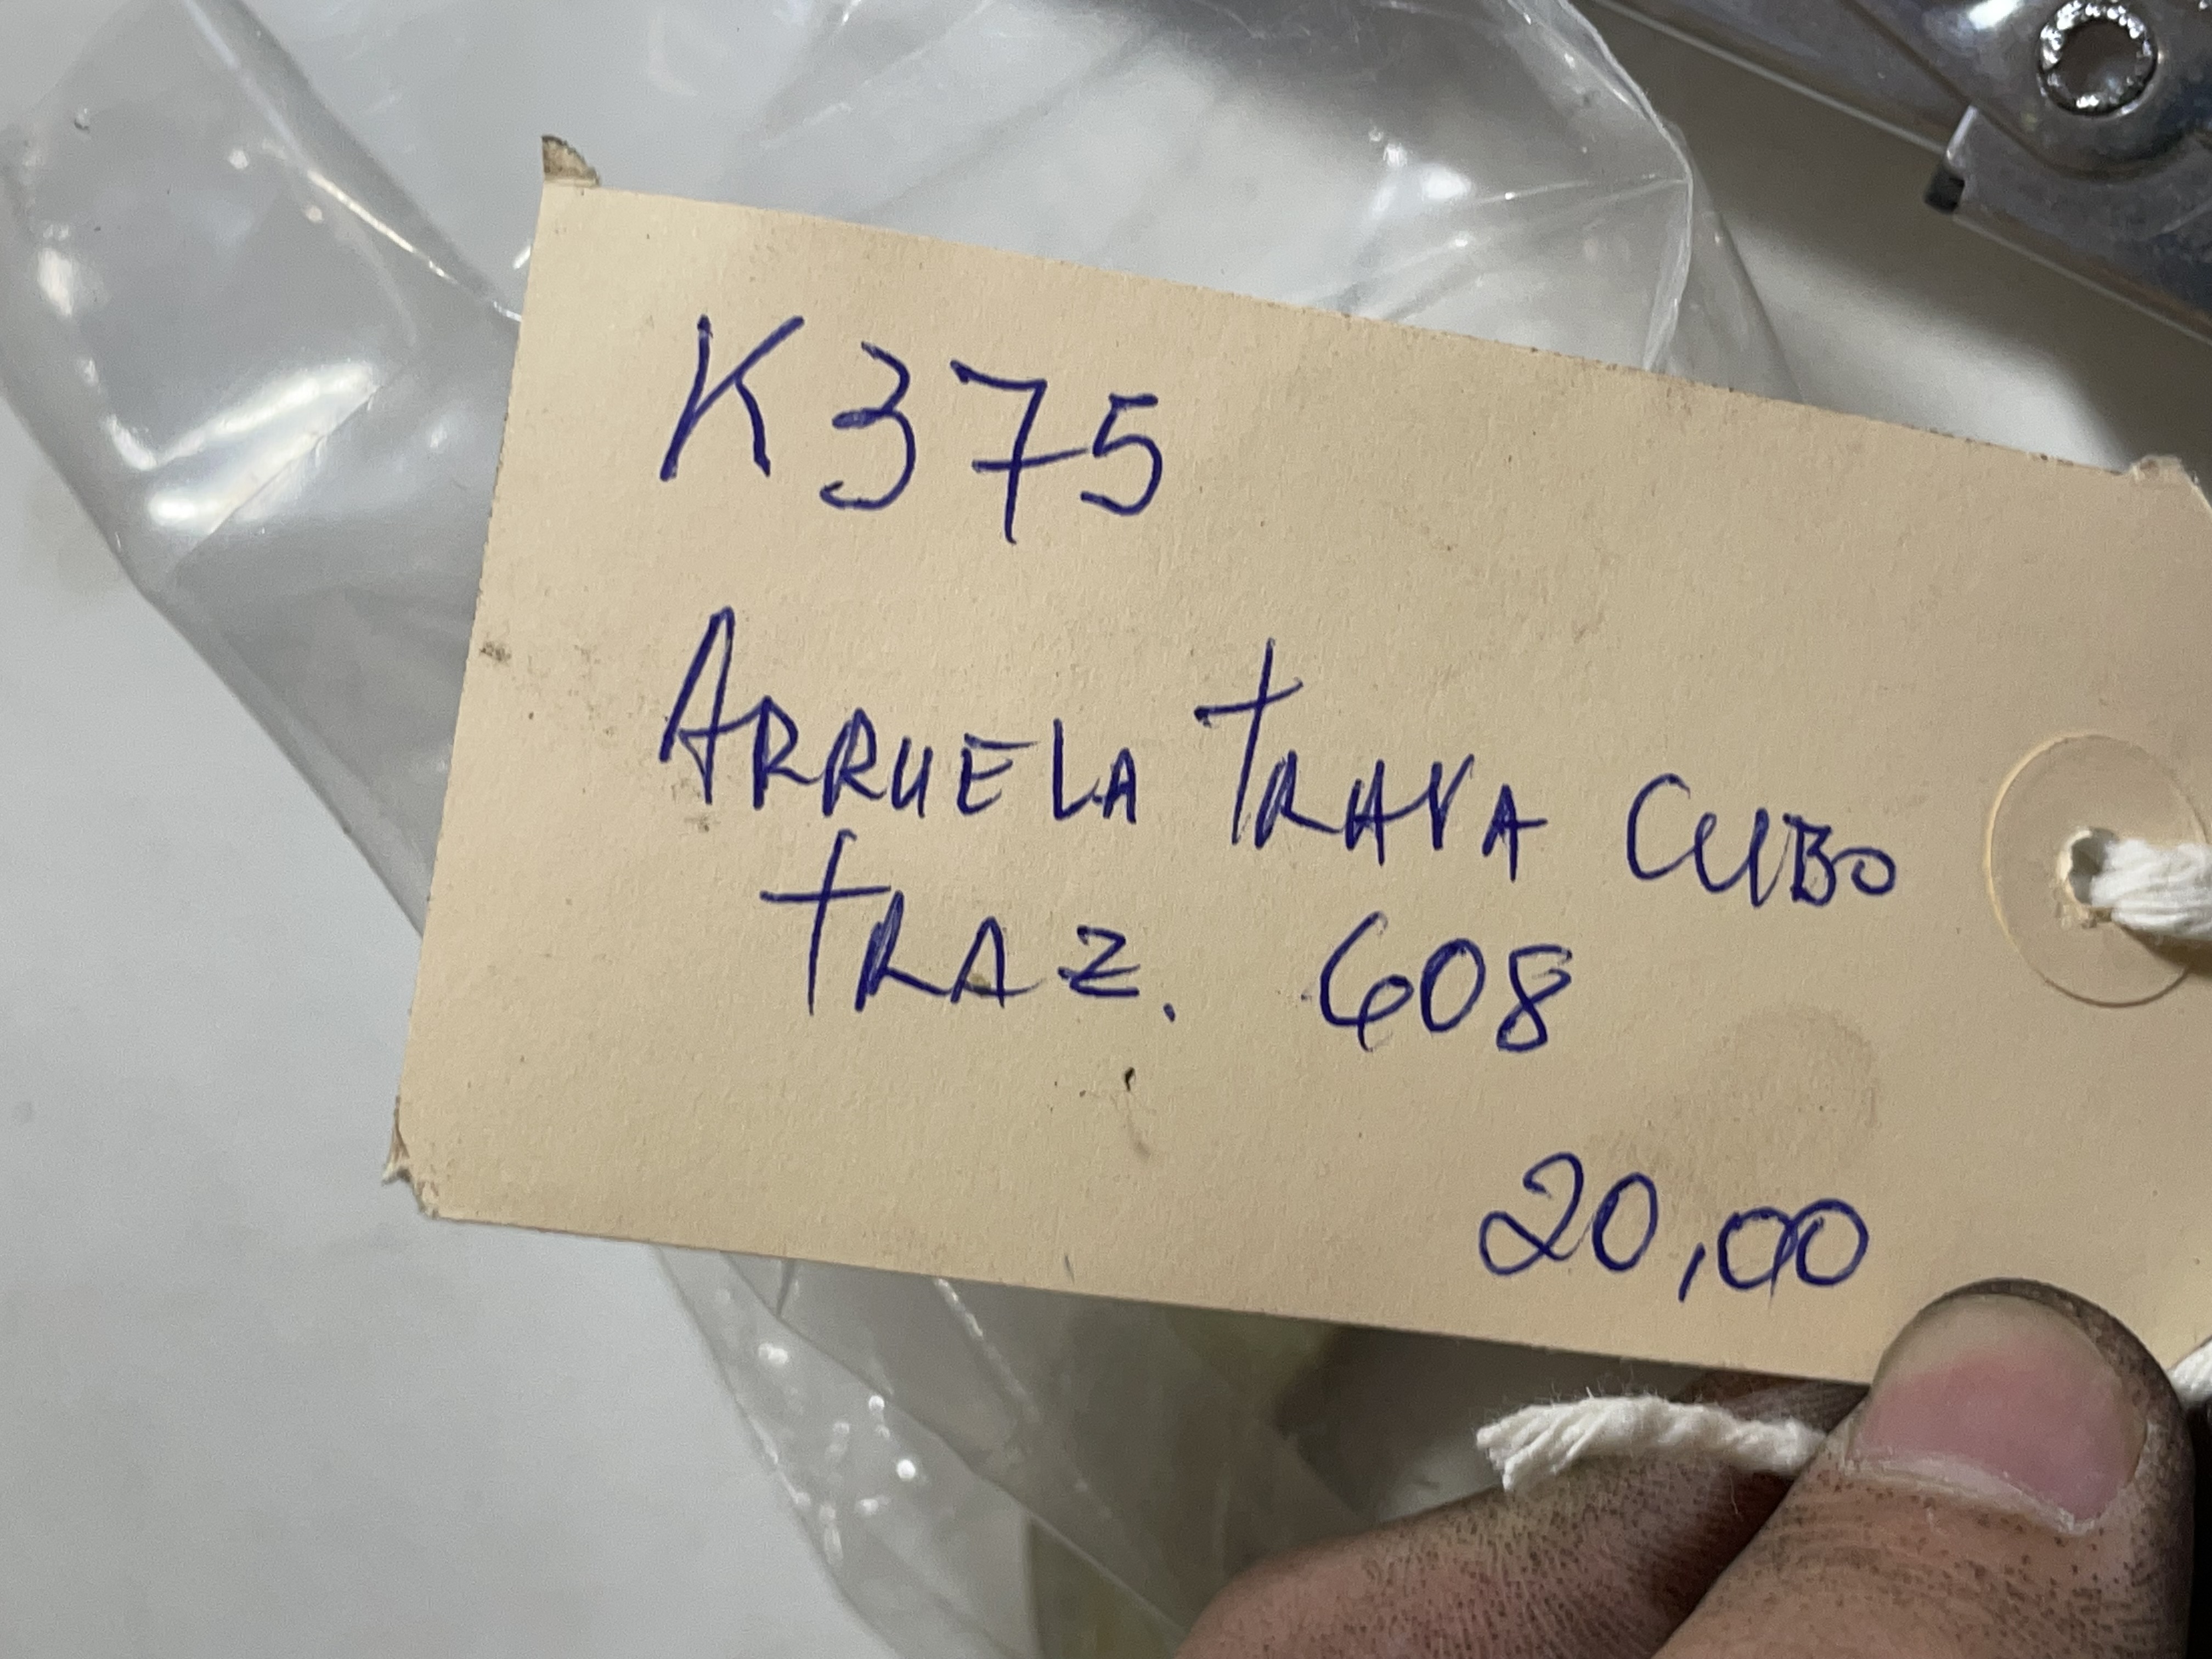 K375
ARRUELA TRAVA CUBO
TRAZ. 608
20,00